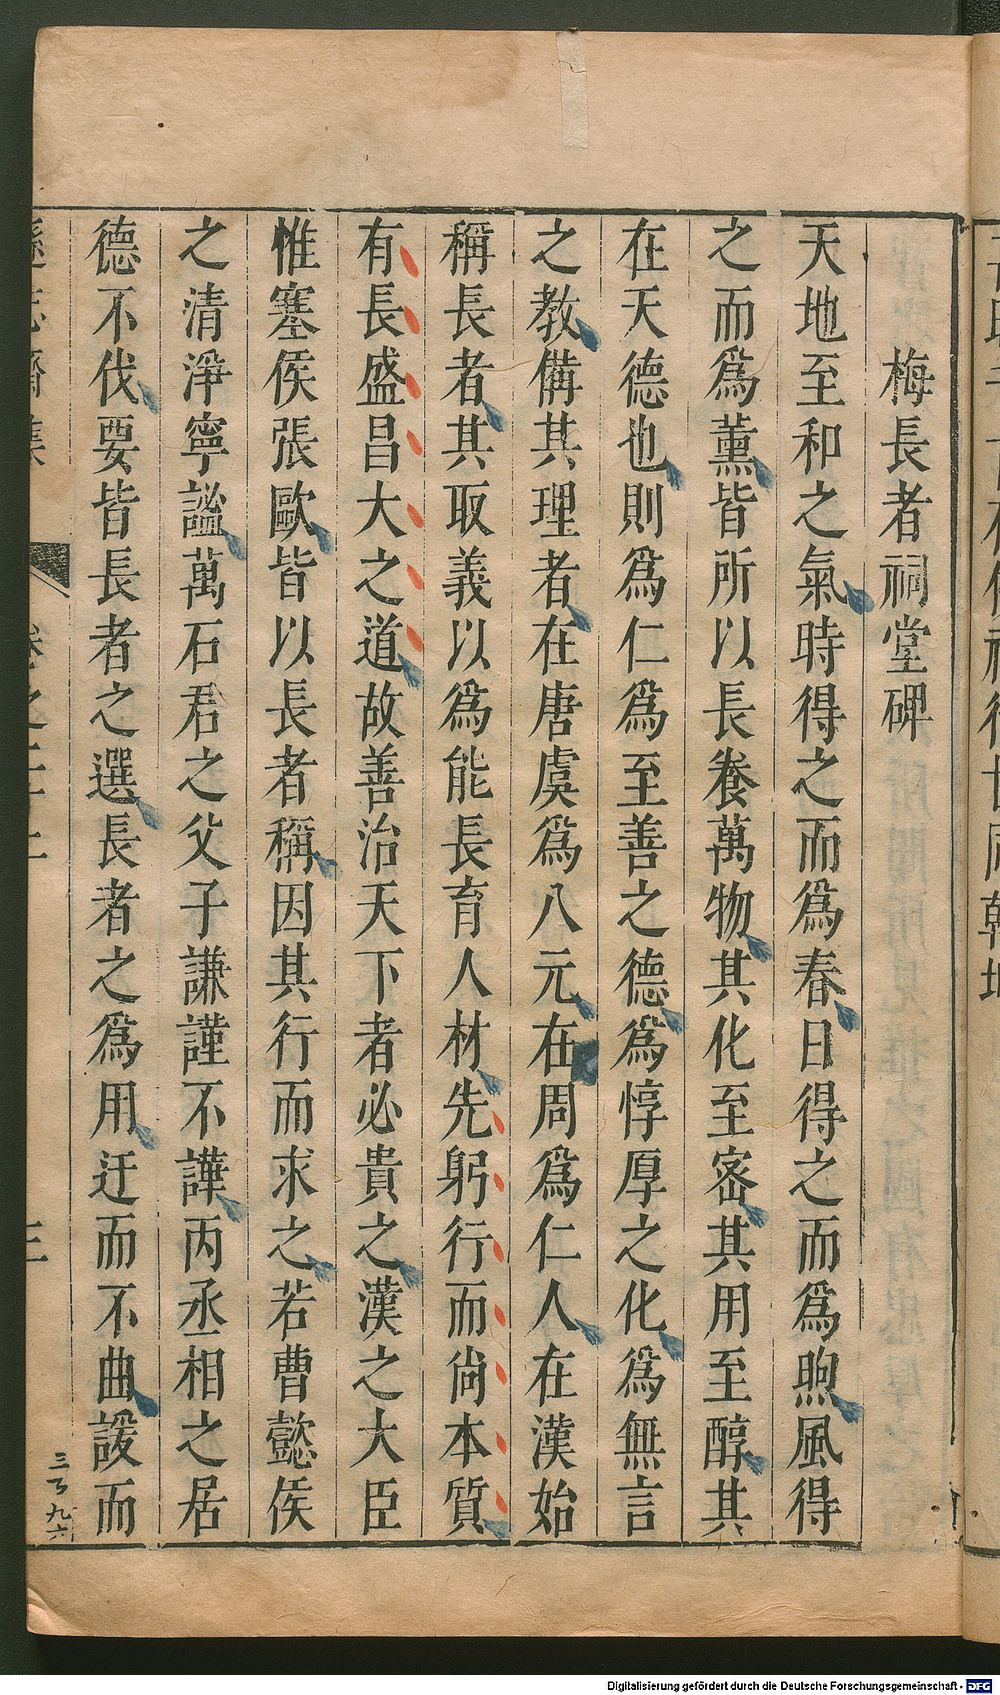 梅長者祠堂碑
天地至和之氣時得之而爲春日得之而爲煦風得
之而爲薰皆所以長養萬物其化至密其用至醇其
在天德也則爲仁爲至善之德爲惇厚之化爲無言
之教備其理者在唐虞爲八元在周爲仁人在漢始
稱長者其取義以爲能長育人材先躬行而尚本質
有長盛昌大之道故善治天下者必貴之漢之大臣
惟塞侯張歐皆以長者稱因其行而求之若曹懿侯
之清淨寧謐萬石君之父子謙謹不譁丙丞相之居
德不伐要皆長者之選長者之爲用迂而不曲諼而
遜志齋集
卷之二十二
三
Digitalisierung gefördert durch die Deutsche Forschungsgemeinschaft - DFG